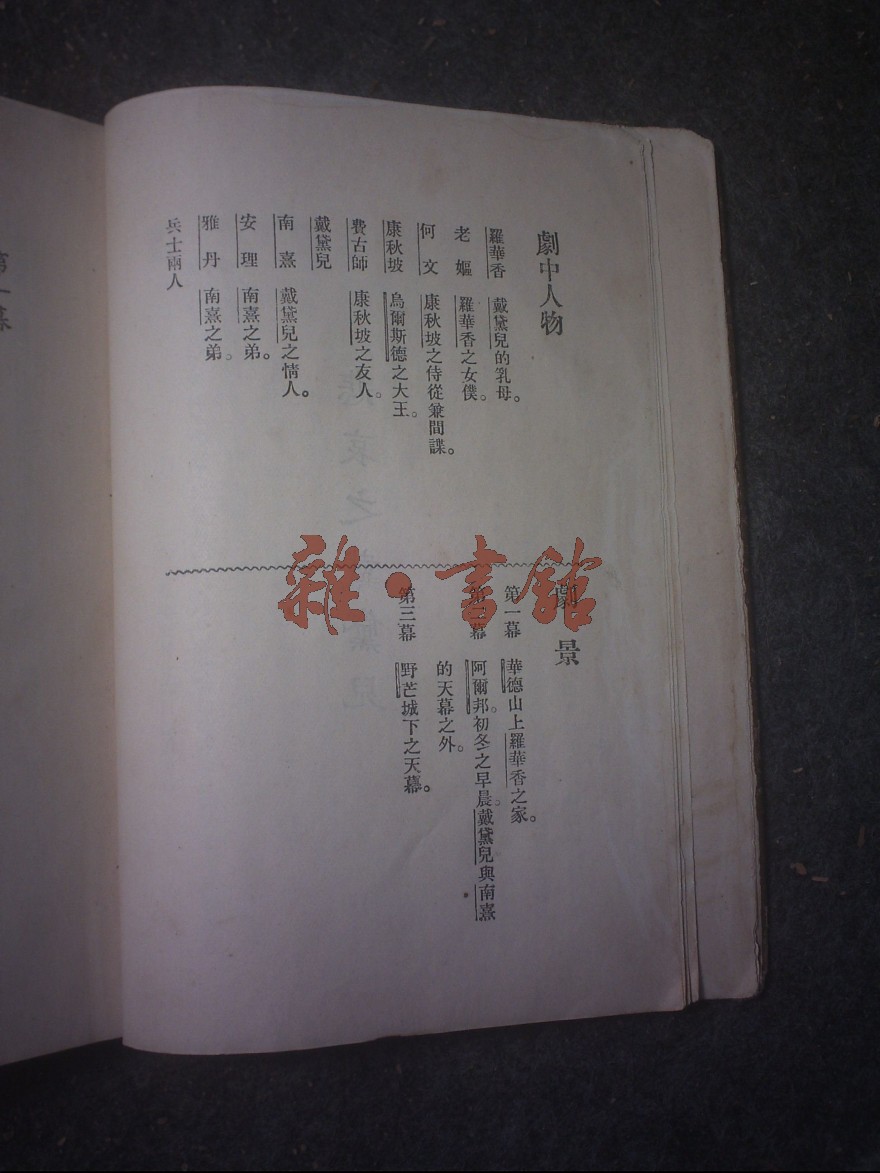 劇中人物
羅華香 戴黛兒的乳母。
老嫗 羅華香之女僕。
何文 康秋坡之侍從兼間諜。
康秋坡 烏爾斯德之大王。
費古師 康秋坡之友人。
戴黛兒
南熹 戴黛兒之情人。
安理 南熹之弟。
雅丹 南熹之弟。
兵士兩人
劇景
第一幕 華德山上羅華香之家。
第二幕 阿爾邦。初冬之早晨。戴黛兒與南熹
的天幕之外。
第三幕 野芒城下之天幕。
雜·書館